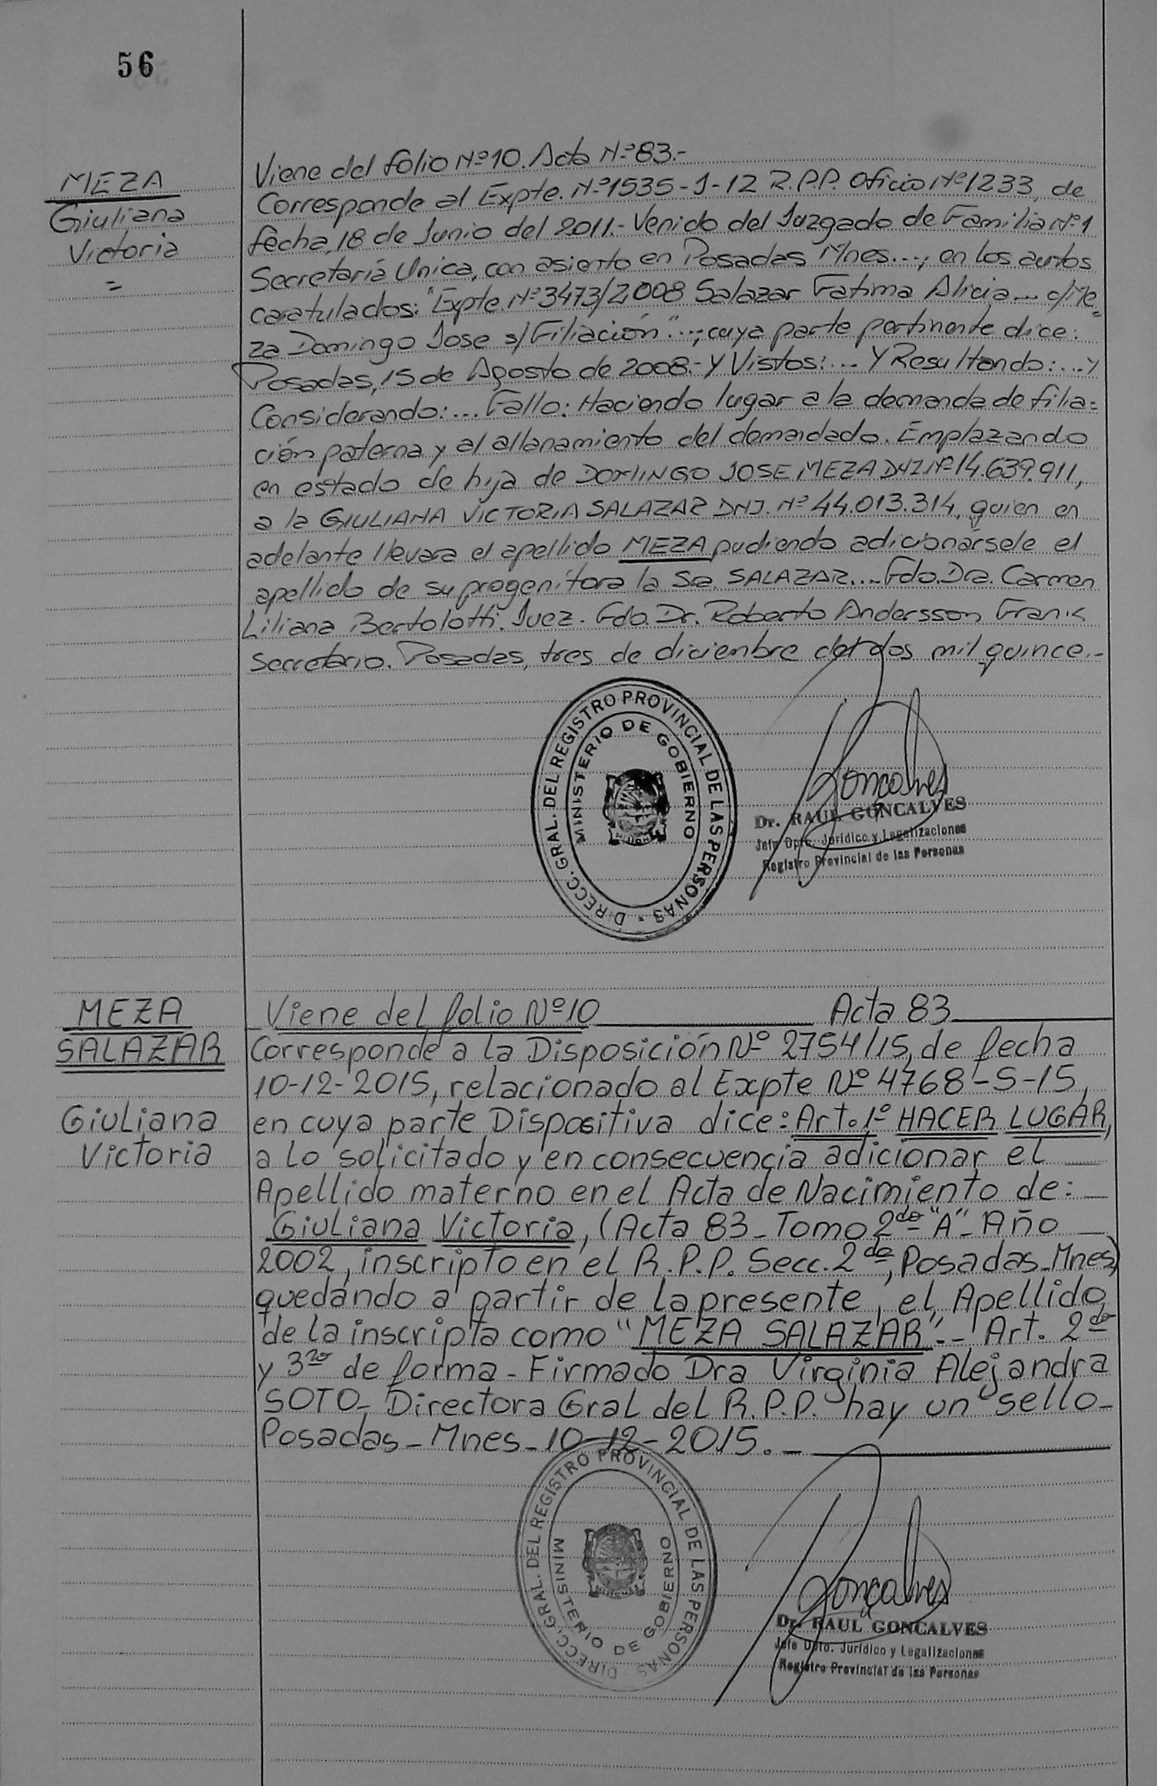 56
MEZA
Giuliana
Victoria
=
Viene del folio Nº10. Acta Nº83.-
Corresponde al Expte. Nº1535-J-12 R.P.P. Oficio Nº1233, de
fecha 18 de Junio del 2011.- Venido del Juzgado de Familia Nº1
Secretaría Unica, con asiento en Posadas Mnes...; en los autos
caratulados: "Expte. Nº3473/2008 Salazar Fatima Alicia... c/Me=
za Domingo Jose s/ Filiación"...; cuya parte pertinente dice:
Posadas, 15 de Agosto de 2008.- Y Vistos:... Y Resultando:... Y
Considerando:... Fallo: Haciendo lugar a la demanda de filia=
ción paterna y al allanamiento del demandado. Emplazando
en estado de hija de DOMINGO JOSE MEZA DNI Nº14.639.911,
a la GIULIANA VICTORIA SALAZAR DNI. Nº44.013.314, quien en
adelante llevara el apellido MEZA pudiendo adicionársele el
apellido de su progenitora la Sra. SALAZAR... Fdo. Dra. Carmen
Liliana Bertolotti. Juez. Fdo. Dr. Roberto Andersson Frank
Secretario. Posadas, tres de diciembre del dos mil quince.-
DIRECC. GRAL. DEL REGISTRO PROVINCIAL DE LAS PERSONAS
MINISTERIO DE GOBIERNO
Goncalves
Dr. RAUL GONCALVES
Jefe Dpto. Jurídico y Legalizaciones
Registro Provincial de las Personas
MEZA
SALAZAR
Giuliana
Victoria
Viene del folio Nº10 Acta 83
Corresponde a la Disposición Nº 2754/15, de fecha
10-12-2015, relacionado al Expte Nº 4768-S-15,
en cuya parte Dispositiva dice: Art. 1º HACER LUGAR,
a lo solicitado y en consecuencia adicionar el
Apellido materno en el Acta de Nacimiento de:
Giuliana Victoria, (Acta 83_Tomo 2do "A"_ Año
2002, inscripto en el R.P.P. Secc. 2da, Posadas_Mnes)
quedando a partir de la presente, el Apellido
de la inscripta como "MEZA SALAZAR"._ Art. 2do
y 3ro de forma - Firmado Dra Virginia Alejandra
SOTO_ Directora Gral del R.P.P. hay un sello_
Posadas_Mnes_10-12-2015._
DIRECC. GRAL. DEL REGISTRO PROVINCIAL DE LAS PERSONAS
MINISTERIO DE GOBIERNO
Goncalves
Dr. RAUL GONCALVES
Jefe Dpto. Jurídico y Legalizaciones
Registro Provincial de las Personas